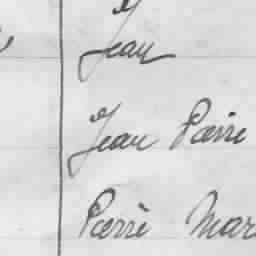 Jean
Jean Pierre
Pierre Mar